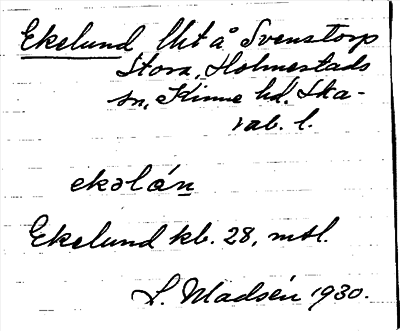 Ekelund lht å Svenstorp
Stora, Holmestads
sn, Kinne hd. Ska-
rab. l.
ekəlón
Ekelund kb. 28, mtl.
L. Madsén 1930.